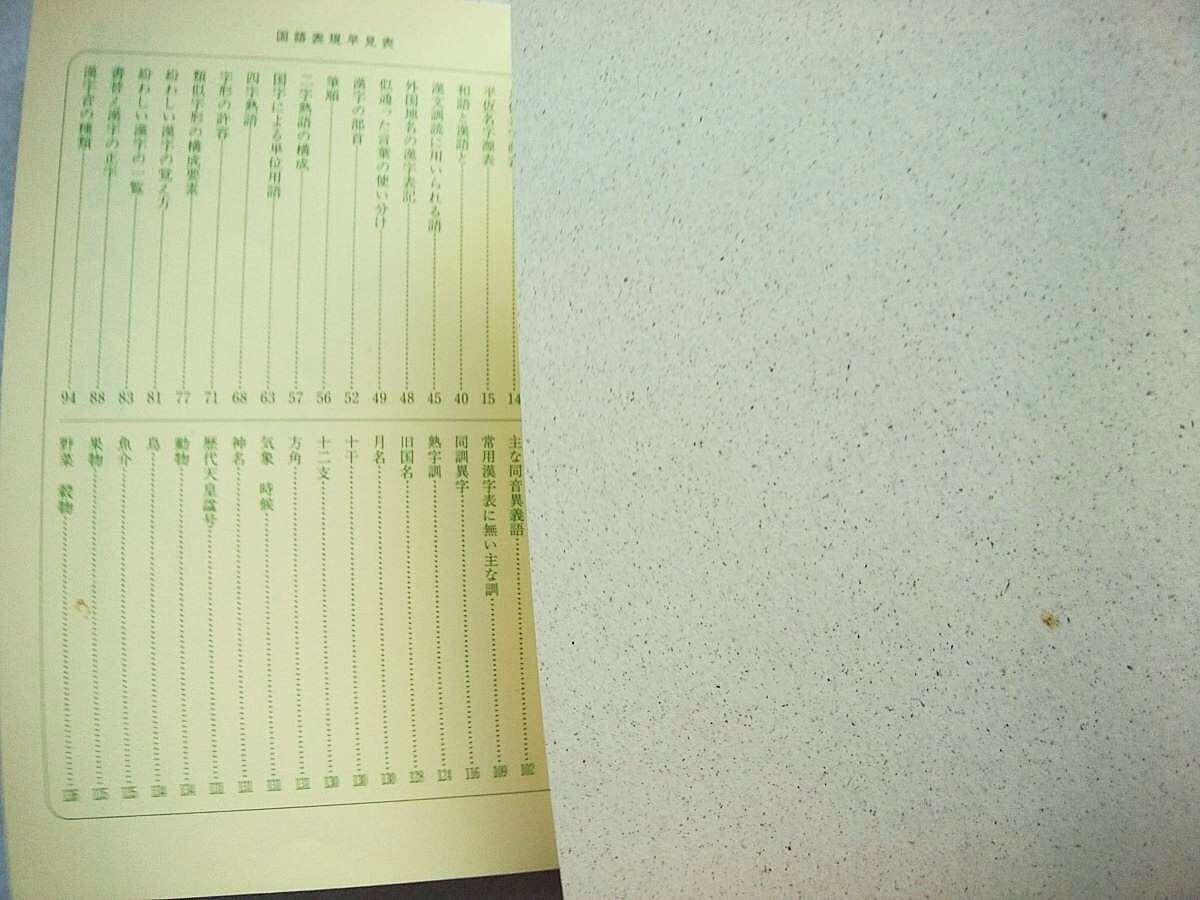 国語表現早見表
平仮名字源表 15
和語と漢語と 40
漢文訓読に用いられる語 45
外国地名の漢字表記 48
似通った言葉の使い分け 49
漢字の部首 52
筆順 56
二字熟語の構成 57
国字による単位用語 63
四字熟語 68
字形の許容 71
類似字形の構成要素 77
紛わしい漢字の覚え方 81
紛わしい漢字の一覧 83
書替え漢字の正字 88
漢字音の種類 94
主な同音異義語 102
常用漢字表に無い主な訓 109
同訓異字 116
熟字訓 124
旧国名 128
月名 130
十干 130
十二支 130
方角 131
気象 時候 131
神名 131
歴代天皇諡号
動物 134
鳥 134
魚介 135
果物 135
野菜 穀物 136